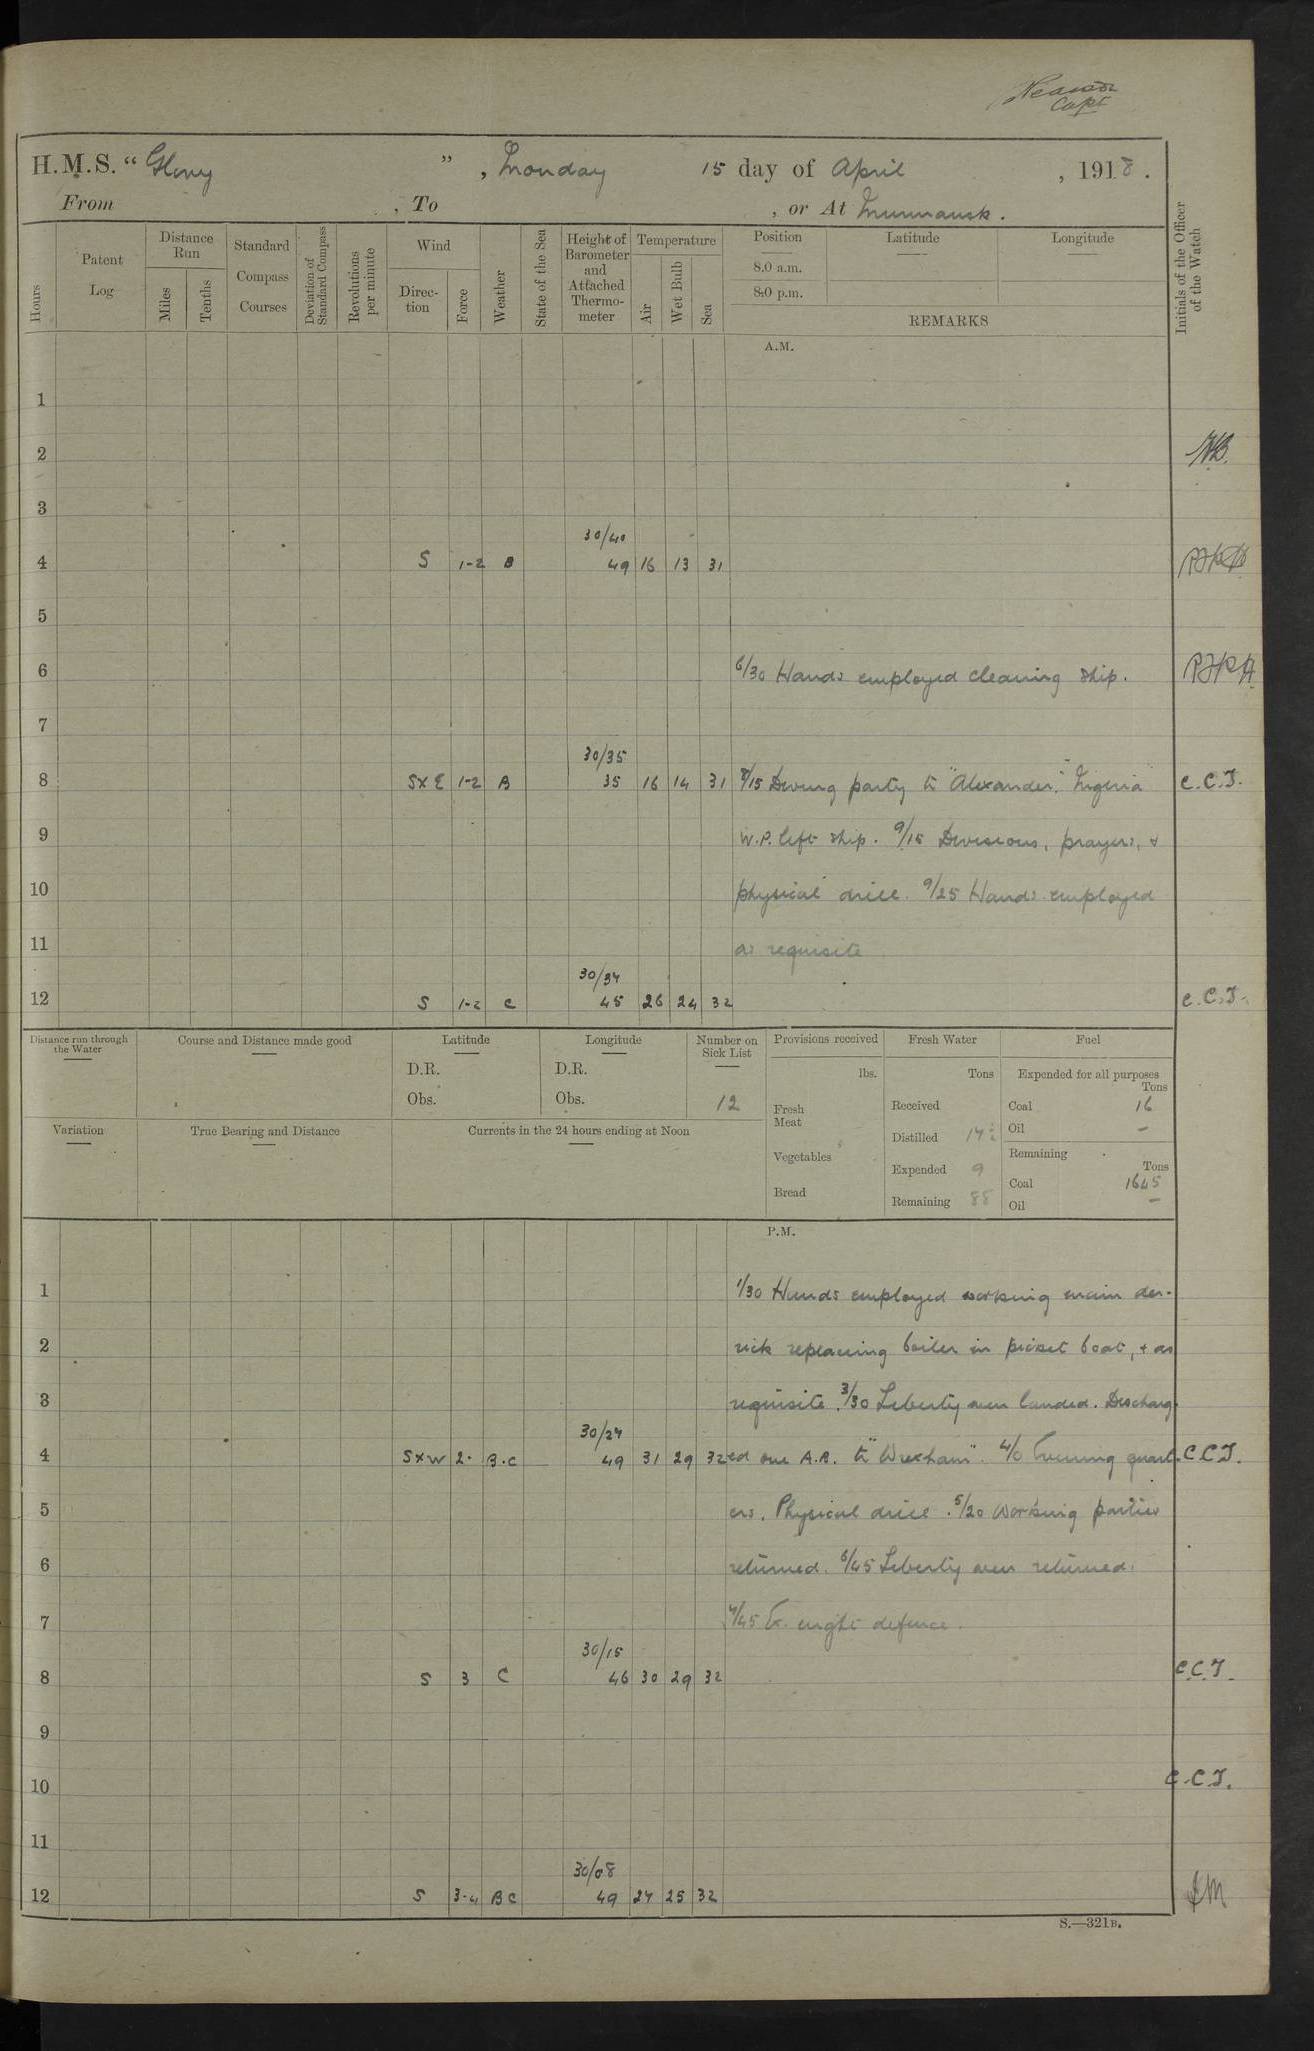 Capt
H.M.S. “ Glory ”, Monday 15 day of April, 1918.
From , To , or At Murmansk.
Hours
Patent Log
Distance Run
Miles
Tenths
Standard Compass Courses
Deviation of Standard Compass
Revolutions per minute
Wind
Direction
Force
Weather
State of the Sea
Height of Barometer and Attached Thermometer
Temperature
Air
Wet Bulb
Sea
Position
8.0 a.m.
8.0 p.m.
Latitude
Longitude
REMARKS
Initials of the Officer of the Watch
A.M.
1
2
3
30/40
4 S 1-2 B 49 16 13 31
5
6 6/30 Hands employed cleaning ship.
7
30/35
8 S×E 1-2 B 35 16 14 31 8/15 Diving party to "Alexander". Nigeria C.C.T.
9 W.P. left ship. 9/15 Divisions, prayers, &
10 physical drill. 9/25 Hands employed
11 as requisite
30/34
12 S 1-2 C 45 26 24 32 C.C.T.
Distance run through the Water
Course and Distance made good
Latitude
D.R.
Obs.
Longitude
D.R.
Obs.
Number on Sick List
12
Provisions received
lbs.
Fresh Meat
Vegetables
Bread
Fresh Water
Tons
Received
Distilled 17½
Expended 9
Remaining 88
Fuel
Expended for all purposes
Tons
Coal 16
Oil –
Remaining
Tons
Coal 1645
Oil –
Variation
True Bearing and Distance
Currents in the 24 hours ending at Noon
P.M.
1 1/30 Hands employed working main der-
2 rick replacing boiler in picket boat, & as
3 requisite. 3/30 Liberty men landed. Discharg-
30/24
4 S×W 2. B.C 49 31 29 32 ed one A.B. to "Wrexham". 4/0 Evening quart- C.C.T.
5 ers. Physical drill. 5/20 Working parties
6 returned. 6/45 Liberty men returned.
7 7/45 Ex. night defence.
30/15
8 S 3 C 46 30 29 32 C.C.T.
9
10 C.C.T.
11
30/08
12 S 3-4 BC 49 27 25 32
S.—321B.